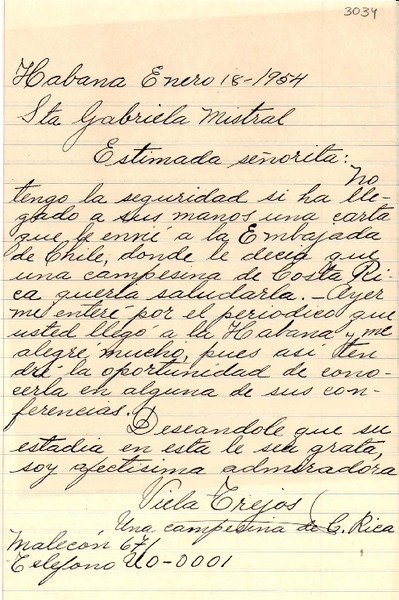 3034
Habana Enero 18-1954
Sta Gabriela Mistral
Estimada señorita:
No
tengo la seguridad si ha lle-
gado a sus manos una carta
que le envié a la Embajada
de Chile, donde le decia que
una campesina de Costa Ri-
ca queria saludarla.- Ayer
me enteré por el periodico que
usted llegó a la Habana y me
alegre mucho, pues asi ten
dré la oportunidad de cono-
cerla en alguna de sus con-
ferencias.
Deseandole que su
estadia en esta le sea grata,
soy afectisima admiradora
Trejos
Una campesina de C. Rica
Malecón 67
Telefono UO-0001